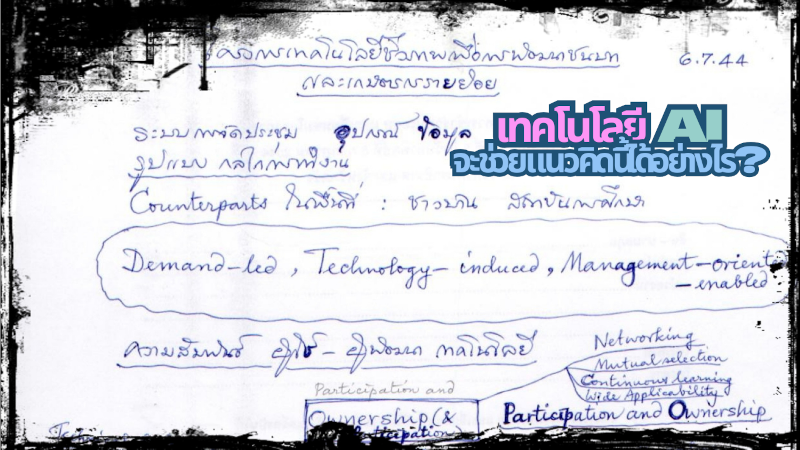 โครงการเทคโนโลยีชีวภาพเพื่อการพัฒนาชนบท
6.7.44
และเกษตรกรรายย่อย
เทคโนโลยี AI
จะช่วยแนวคิดนี้ได้อย่างไร?
ระบบการจัดประชุม อุปกรณ์ ข้อมูล
รูปแบบ กลไกการทำงาน
Counterparts ในพื้นที่ : ชาวบ้าน สถาบันการศึกษา
Demand-led, Technology-induced, Management-orient
-enabled
ความสัมพันธ์ ผู้ใช้ - ผู้พัฒนา เทคโนโลยี
Networking
Mutual selection
Continuous learning
Wide Applicability
Participation and
Ownership (&
Participation
Participation and Ownership